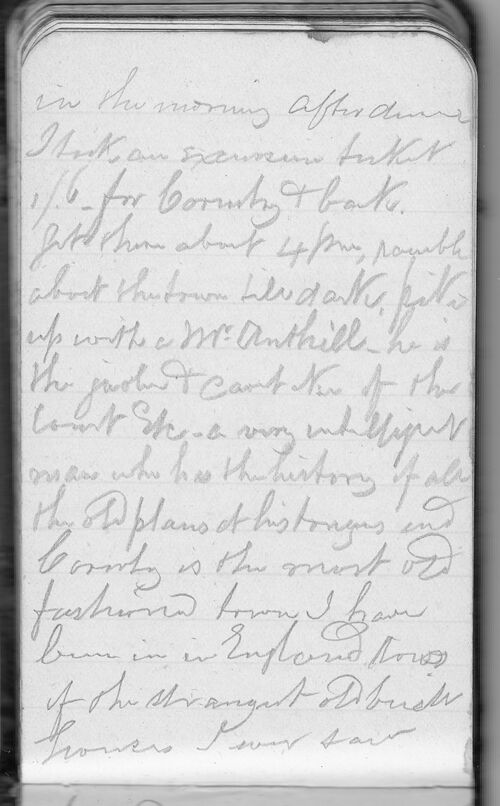 in the morning after dinner
I took an excursion ticket
1/6 - for Coventry & back.
Gets there about 4 Pm, ramble
about the town till dark,
up with a Mr. Anthill - he is
the & of the
Court Etc - a very intelligent
man who has the history of all
the old plans at his tongues end
Coventry is the most old
fashioned town I have
been in in England
of the strangest old built
houses I ever saw